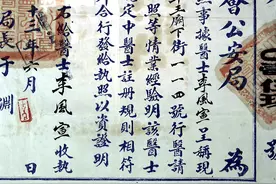 會公安局為
事據醫士李風宣呈稱現
廟下街一一四號行醫請
照等情業經驗明該醫士
定中醫士註冊規則相符
合行發給執照以資證明
右給醫士李風宣收執
十二年六月日
局長于淵